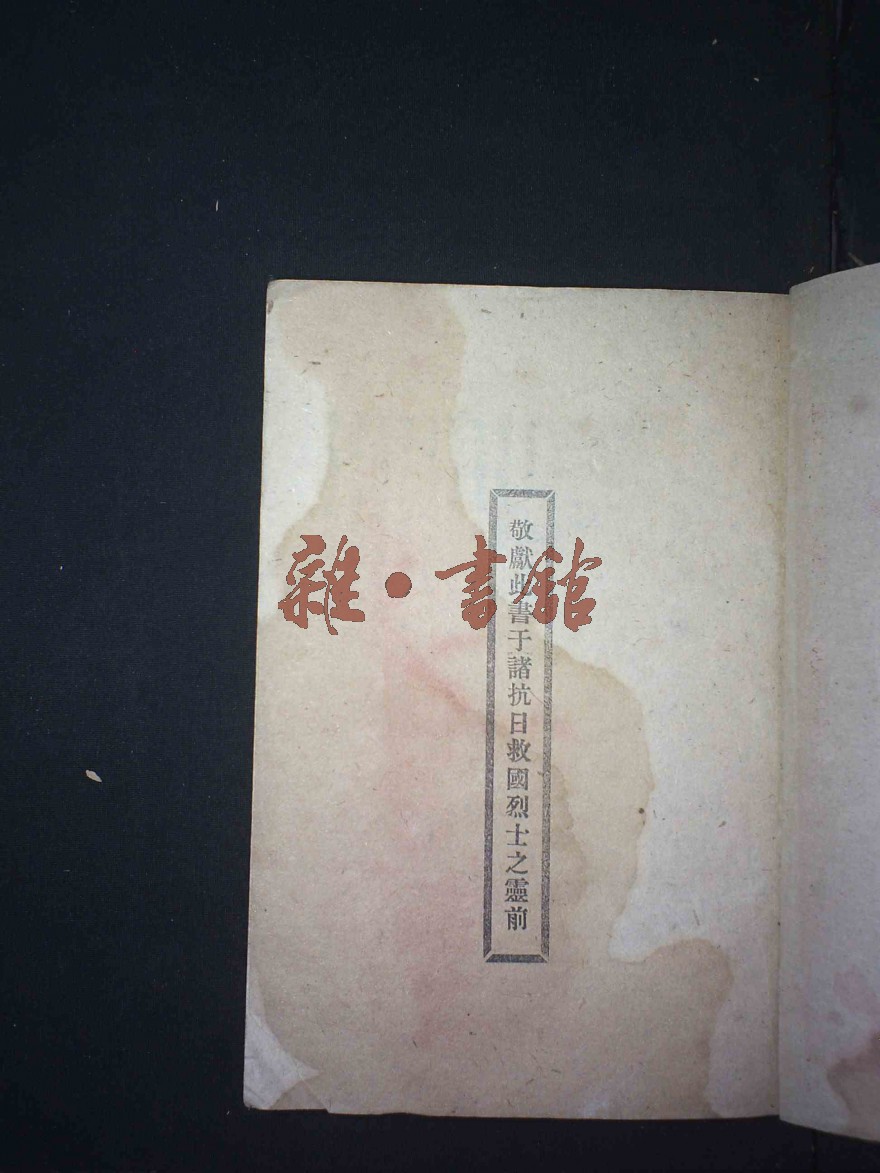 敬獻此書于諸抗日救國烈士之靈前
雜·書館